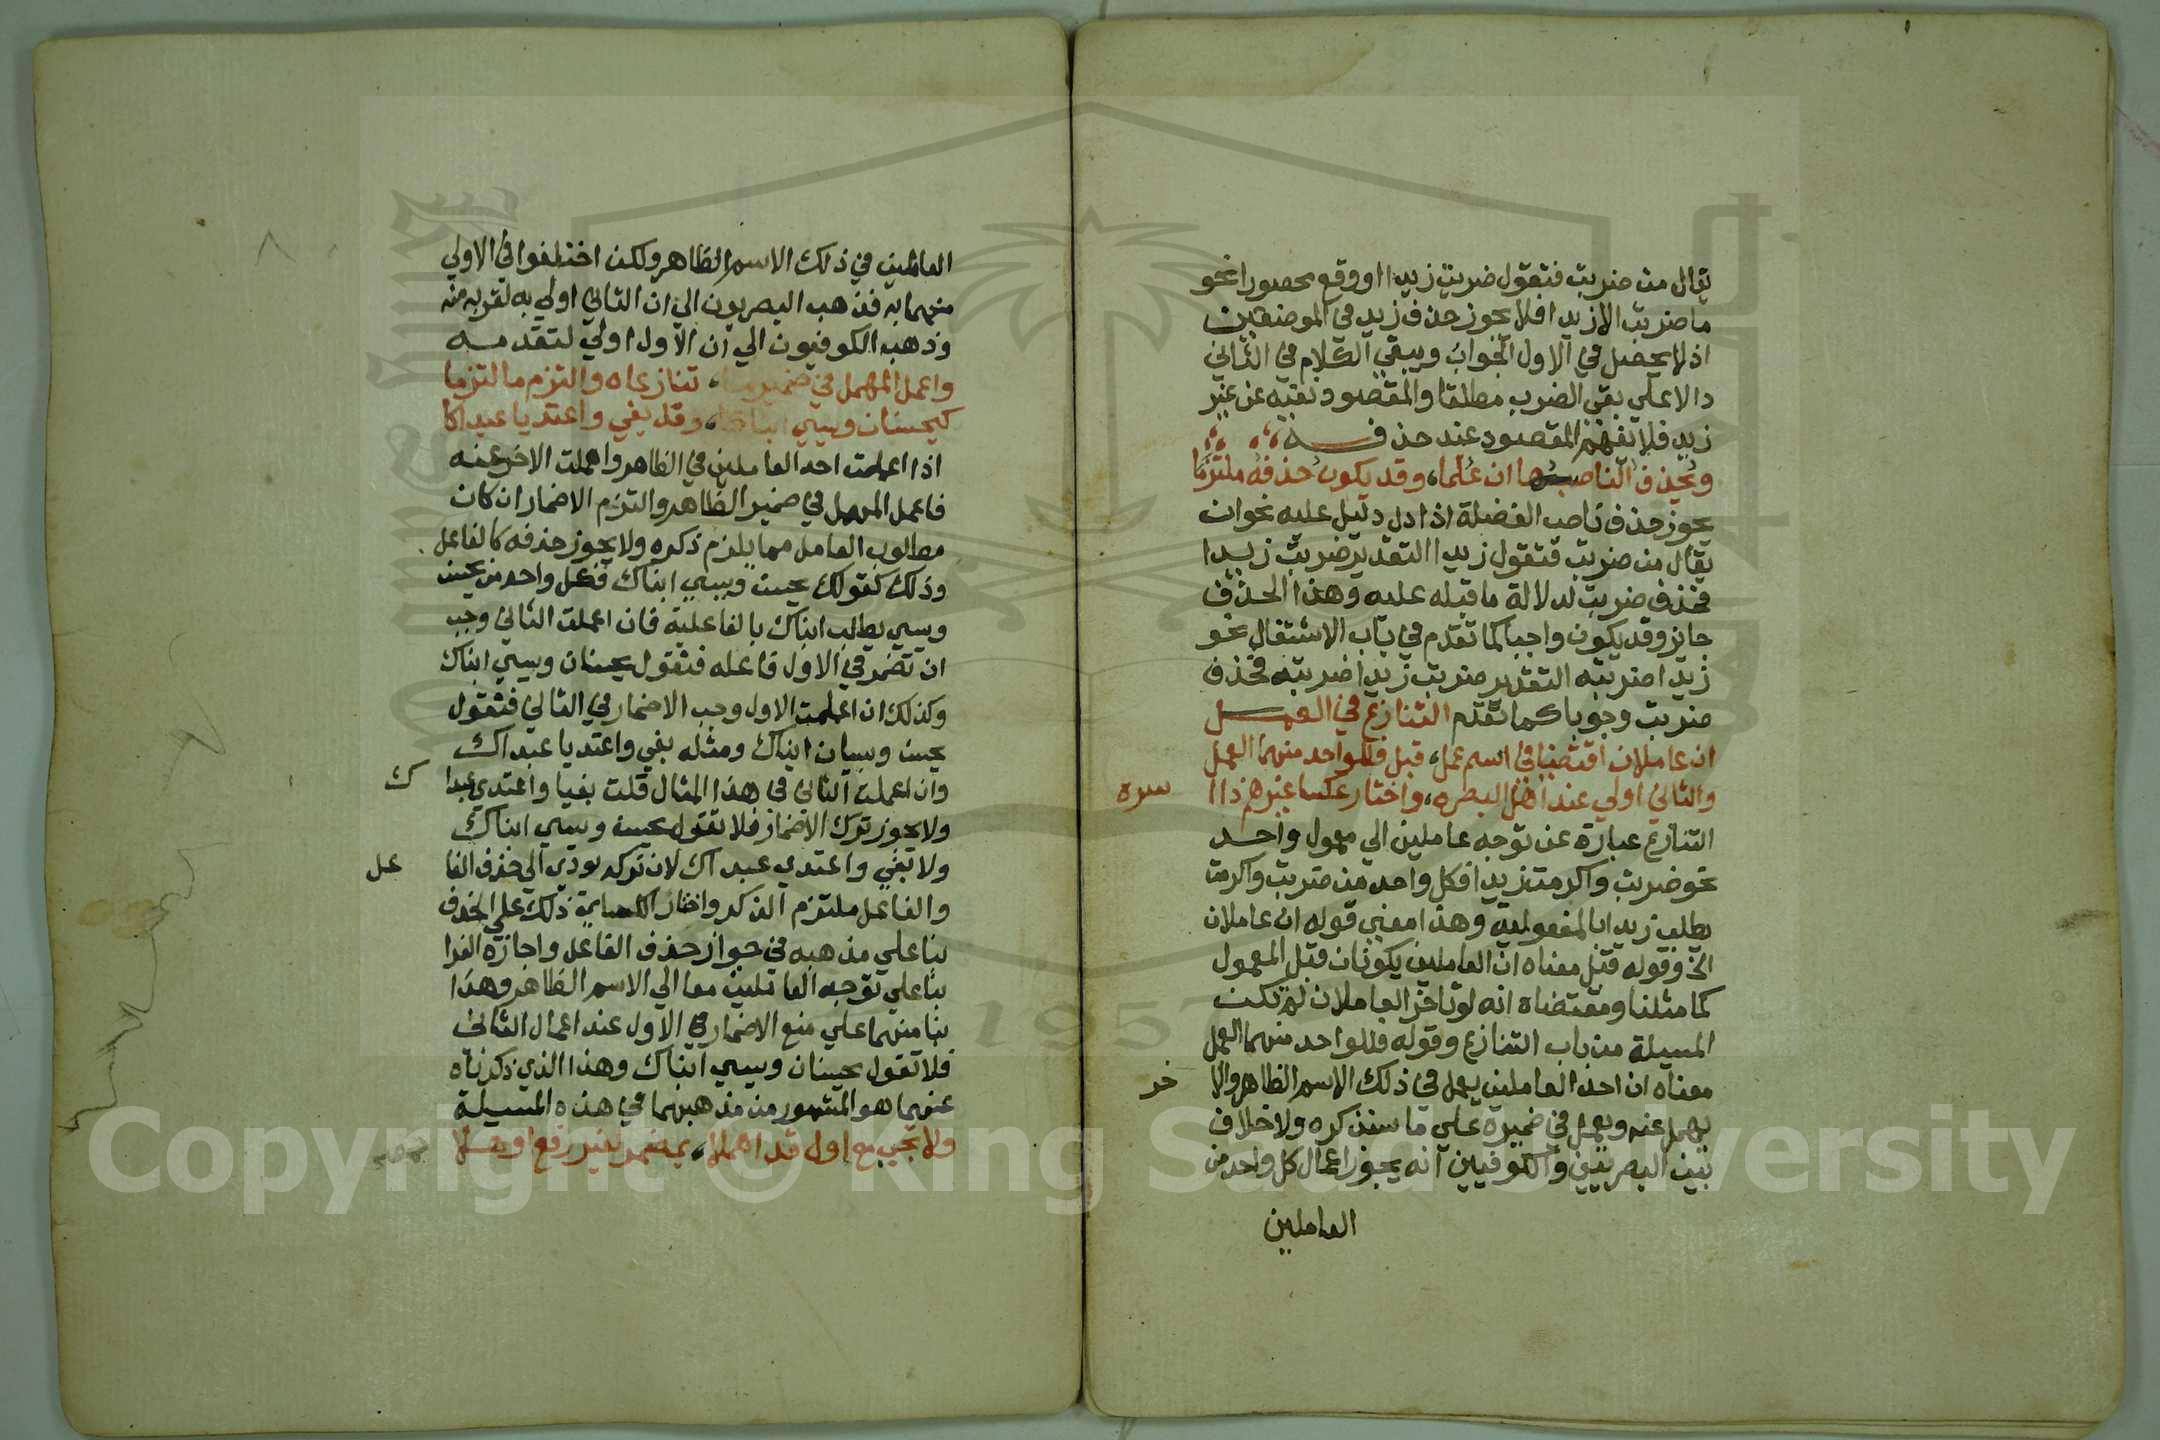 يقال من ضربت فتقول ضربت زيدا او وقع محصورا نحو
ما ضربت الا زيدا فلا يجوز حذف زيد في الموضعين
اذ لا يحصل في الاول الجواب ويبقي الكلام في الثاني
دالا علي نفي الضرب مطلقا والمقصود نفيه عن غير
زيد فلا يفهم المقصود عند حذفه
ويحذف الناصبها ان علما، وقد يكون حذفه ملتزما
يجوز حذف ناصب الفضلة اذا دل دليل عليه نحو ان
يقال من ضربت فتقول زيدا التقدير ضربت زيدا
فحذف ضربت لدلالة ما قبله عليه وهذا الحذف
جايز وقد يكون واجبا كما تقدم في باب الاشتغال نحو
زيدا ضربته التقدير ضربت زيدا ضربته فحذف
ضربت وجوبا كما تقدم التنازع في العمل
ان عاملان اقتضيا في اسم عمل، قبل فللواحد منهما العمل
والثاني اولي عند اهل البصره، واختار عكسا غيرهم ذا ا
سره
التنازع عبارة عن توجه عاملين الي معمول واحد
نحو ضربت واكرمت زيدا فكل واحد من ضربت واكرمت
يطلب زيدا بالمفعولية وهذا معني قوله ان عاملان
الخ وقوله قبل معناه ان العاملين يكونان قبل المعمول
كما مثلنا ومقتضاه انه لو تاخر العاملان لم تكن
المسيلة من باب التنازع وقوله فللواحد منهما العمل
معناه ان احد العاملين يعمل في ذلك الاسم الظاهر والا
خر
يهمل عنه ويعمل في ضميره علي ما سنذكره ولا خلاف
بين البصريين والكوفيين انه يجوز اعمال كل واحد من
العاملين
العاملين في ذلك الاسم الظاهر ولكن اختلفوا في الاولي
منهما به فذهب البصريون الي ان الثاني اولي به لقربه منه
وذهب الكوفيون الي ان الاول اولي لتقدمه
واعمل المهمل في ضمير ما، تنازعاه والتزم ما التزما
كيحسنان ويسي ابناكا، وقد بغي واعتديا عبداكا
اذا اعملت احد العاملين في الظاهر واهملت الاخر عنه
فاعمل المهمل في ضمير الظاهر والتزم الاضمار ان كان
مطلوب العامل مما يلزم ذكره ولا يجوز حذفه كالفاعل
وذلك كقولك يحسن ويسي ابناك فكل واحد من يحسن
ويسي يطلب ابناك بالفاعلية فان اعملت الثاني وجب
ان تضمر في الاول فاعله فتقول يحسنان ويسي ابناك
وكذلك ان اعملت الاول وجب الاضمار في الثاني فتقول
يحسن ويسيان ابناك ومثله بغي واعتديا عبداك
وان اعملت الثاني في هذا المثال قلت بغيا واعتدي عبدا
ك
ولا يجوز ترك الاضمار فلا تقول يحسن ويسي ابناك
ولا بغي واعتدي عبداك لان تركه يودي الي حذف الفا
عل
والفاعل ملتزم الذكر واختار الكسايي ذلك علي الحذف
بنا علي مذهبه في جواز حذف الفاعل واجازه الفرا
بنا علي توجه العاملين معا الي الاسم الظاهر وهذا
بنا منهما علي منع الاضمار في الاول عند اعمال الثاني
فلا تقول يحسنان ويسي ابناك وهذا الذي ذكرناه
عنهما هو المشهور من مذهبهما في هذه المسيلة
ولا تجي مع اول قد اهملا، بمضمر لغير رفع اوهلا
Copyright © King Saud University
1957